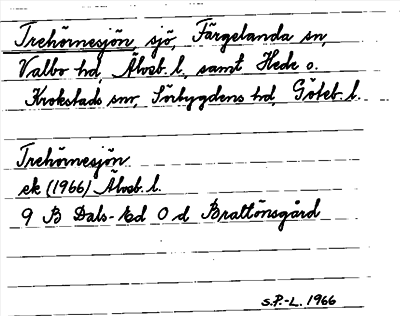 Trehörnesjön sjö, Färgelanda sn,
Valbo hd, Älvsb. l., samt Hede o.
Krokstads snr, Sörbygdens hd, Göteb. l.
Trehörnesjön
ek (1966) Älvsb. l.
9 B Dals-Ed 0 d Brattönsgård
S.P.-L. 1966